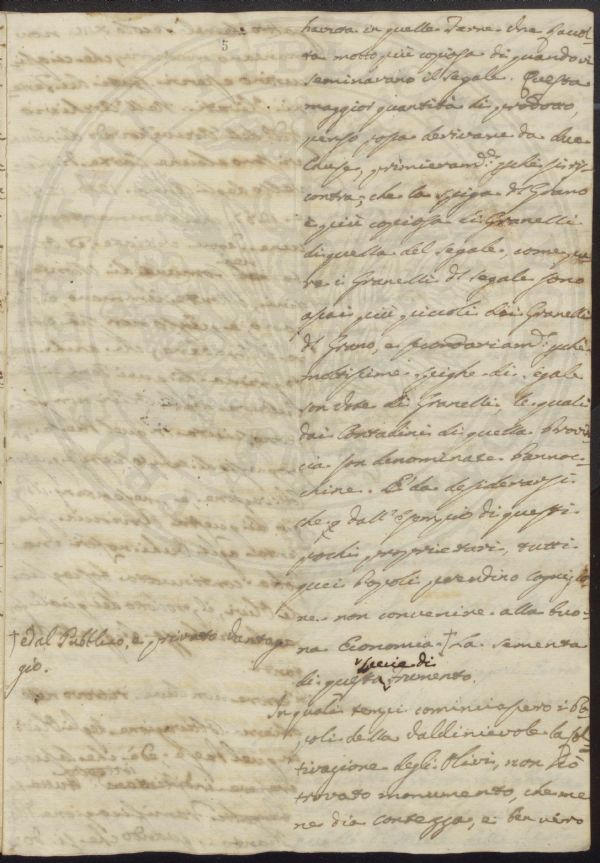 5
havuta in quelle Terre una raccol-
ta molto più copiosa di quando vi
seminavano il segale. Questa
maggior quantità di prodotto,
penso possa derivare da due
Cause, primieram.te perche si ris-
contra, che la spiga del Grano
è più copiosa di Granelli
di quella del segale, come pu-
re i Granelli del segale sono
assai più piccoli dei Granelli
del Grano, e secondariam.te perche
moltissime spighe di segale
son vote di Granelli, le quali
dai Contadini di quella Provin
cia son denominate
chine. È da desiderarsi
che dall' Esempio di questi
pochi proprietari, tutti
quei Popoli prendino cognizio
ne non convenire alla buo-
na Economia † La sementa
† e dal Pubblico, e privato Vantag
gio.
di questa specie di frumento.
In quali tempi cominciassero i Po
poli della Valdinievole la Col
tivazione degli Olivi, non ho
trovato monumento, che me
ne dia contezza, e ben vero